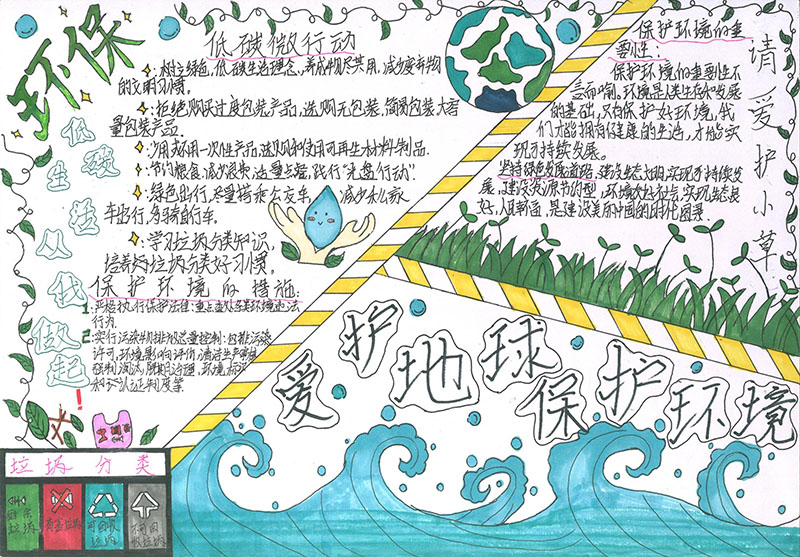 环保
低碳生活从我做起!
低碳微行动
树立绿色,低碳生活理念,养成物尽其用,减少废弃物
的文明习惯。
拒绝购买过度包装产品,选购无包装,简易包装大容
量包装产品.
少用或不用一次性产品,选购和使用可再生材料制品.
节约粮食,减少浪费,
践行“光盘行动”.
绿色出行,尽量搭乘公交车、
减少私家
车出行,多骑自行车.
学习垃圾分类知识,
培养好垃圾分类好习惯。
保护环境的措施:
1:严格执行保护法律:重点查处各类环境违法
行为.
2:实行污染物排放总量控制:
排污
许可,环境影响评价,清洁生产
强制淘汰,限期治理,环境标识
和
认证制度等.
保护环境的重
要性:
保护环境的重要性不
言而喻,环境是人类生存和发展
的基础,只有保护好环境,我
们才能拥有健康的生活,才能实
现可持续发展。
坚持绿色发展道路,建设生态文明,实现可持续发
展,建设资源节约型、环境友好
,实现生态良
好,人民幸福,是建设美丽中国的
图景.
请爱护小草
爱护地球
保护环境
垃圾分类
厨余垃圾
有害垃圾
可回收垃圾
不可回收垃圾